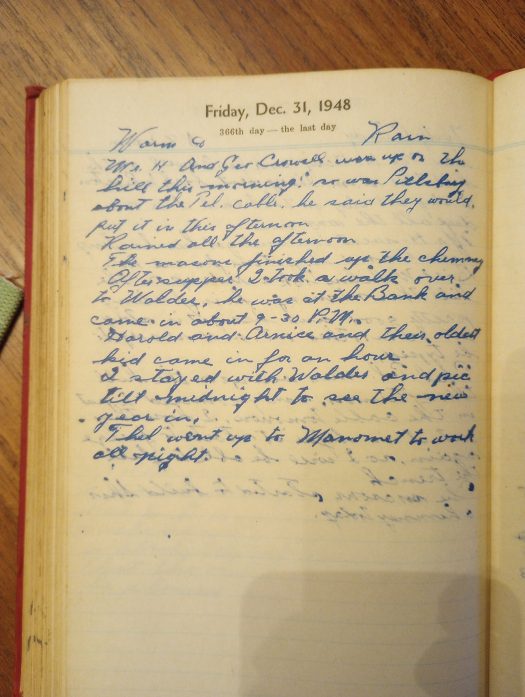 Friday, Dec. 31, 1948
366th day — the last day
Warm & Rain
Mr. H. And Geo Crowell were up on the
hill this morning. so was Pillsbury
about the Tel. cable, he said they would
put it in this afternoon
Rained all the afternoon
The masons finished up the chimney
After supper I took a walk over
to Waldes, he was at the Bank and
came in about 9-30 P.M.
Harold and Arnice and their oldest
kid came in for an hour
I stayed with Waldes and
till midnight to see the new
year in.
Thel went up to Manomet to work
all night.